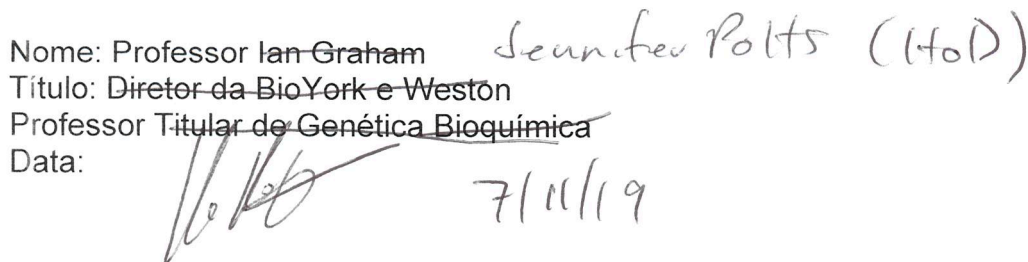 Nome: Professor Ian Graham Jennifer Potts (HoD)
Título: Diretor da BioYork e Weston
Professor Titular de Genética Bioquímica
Data: 7/11/19